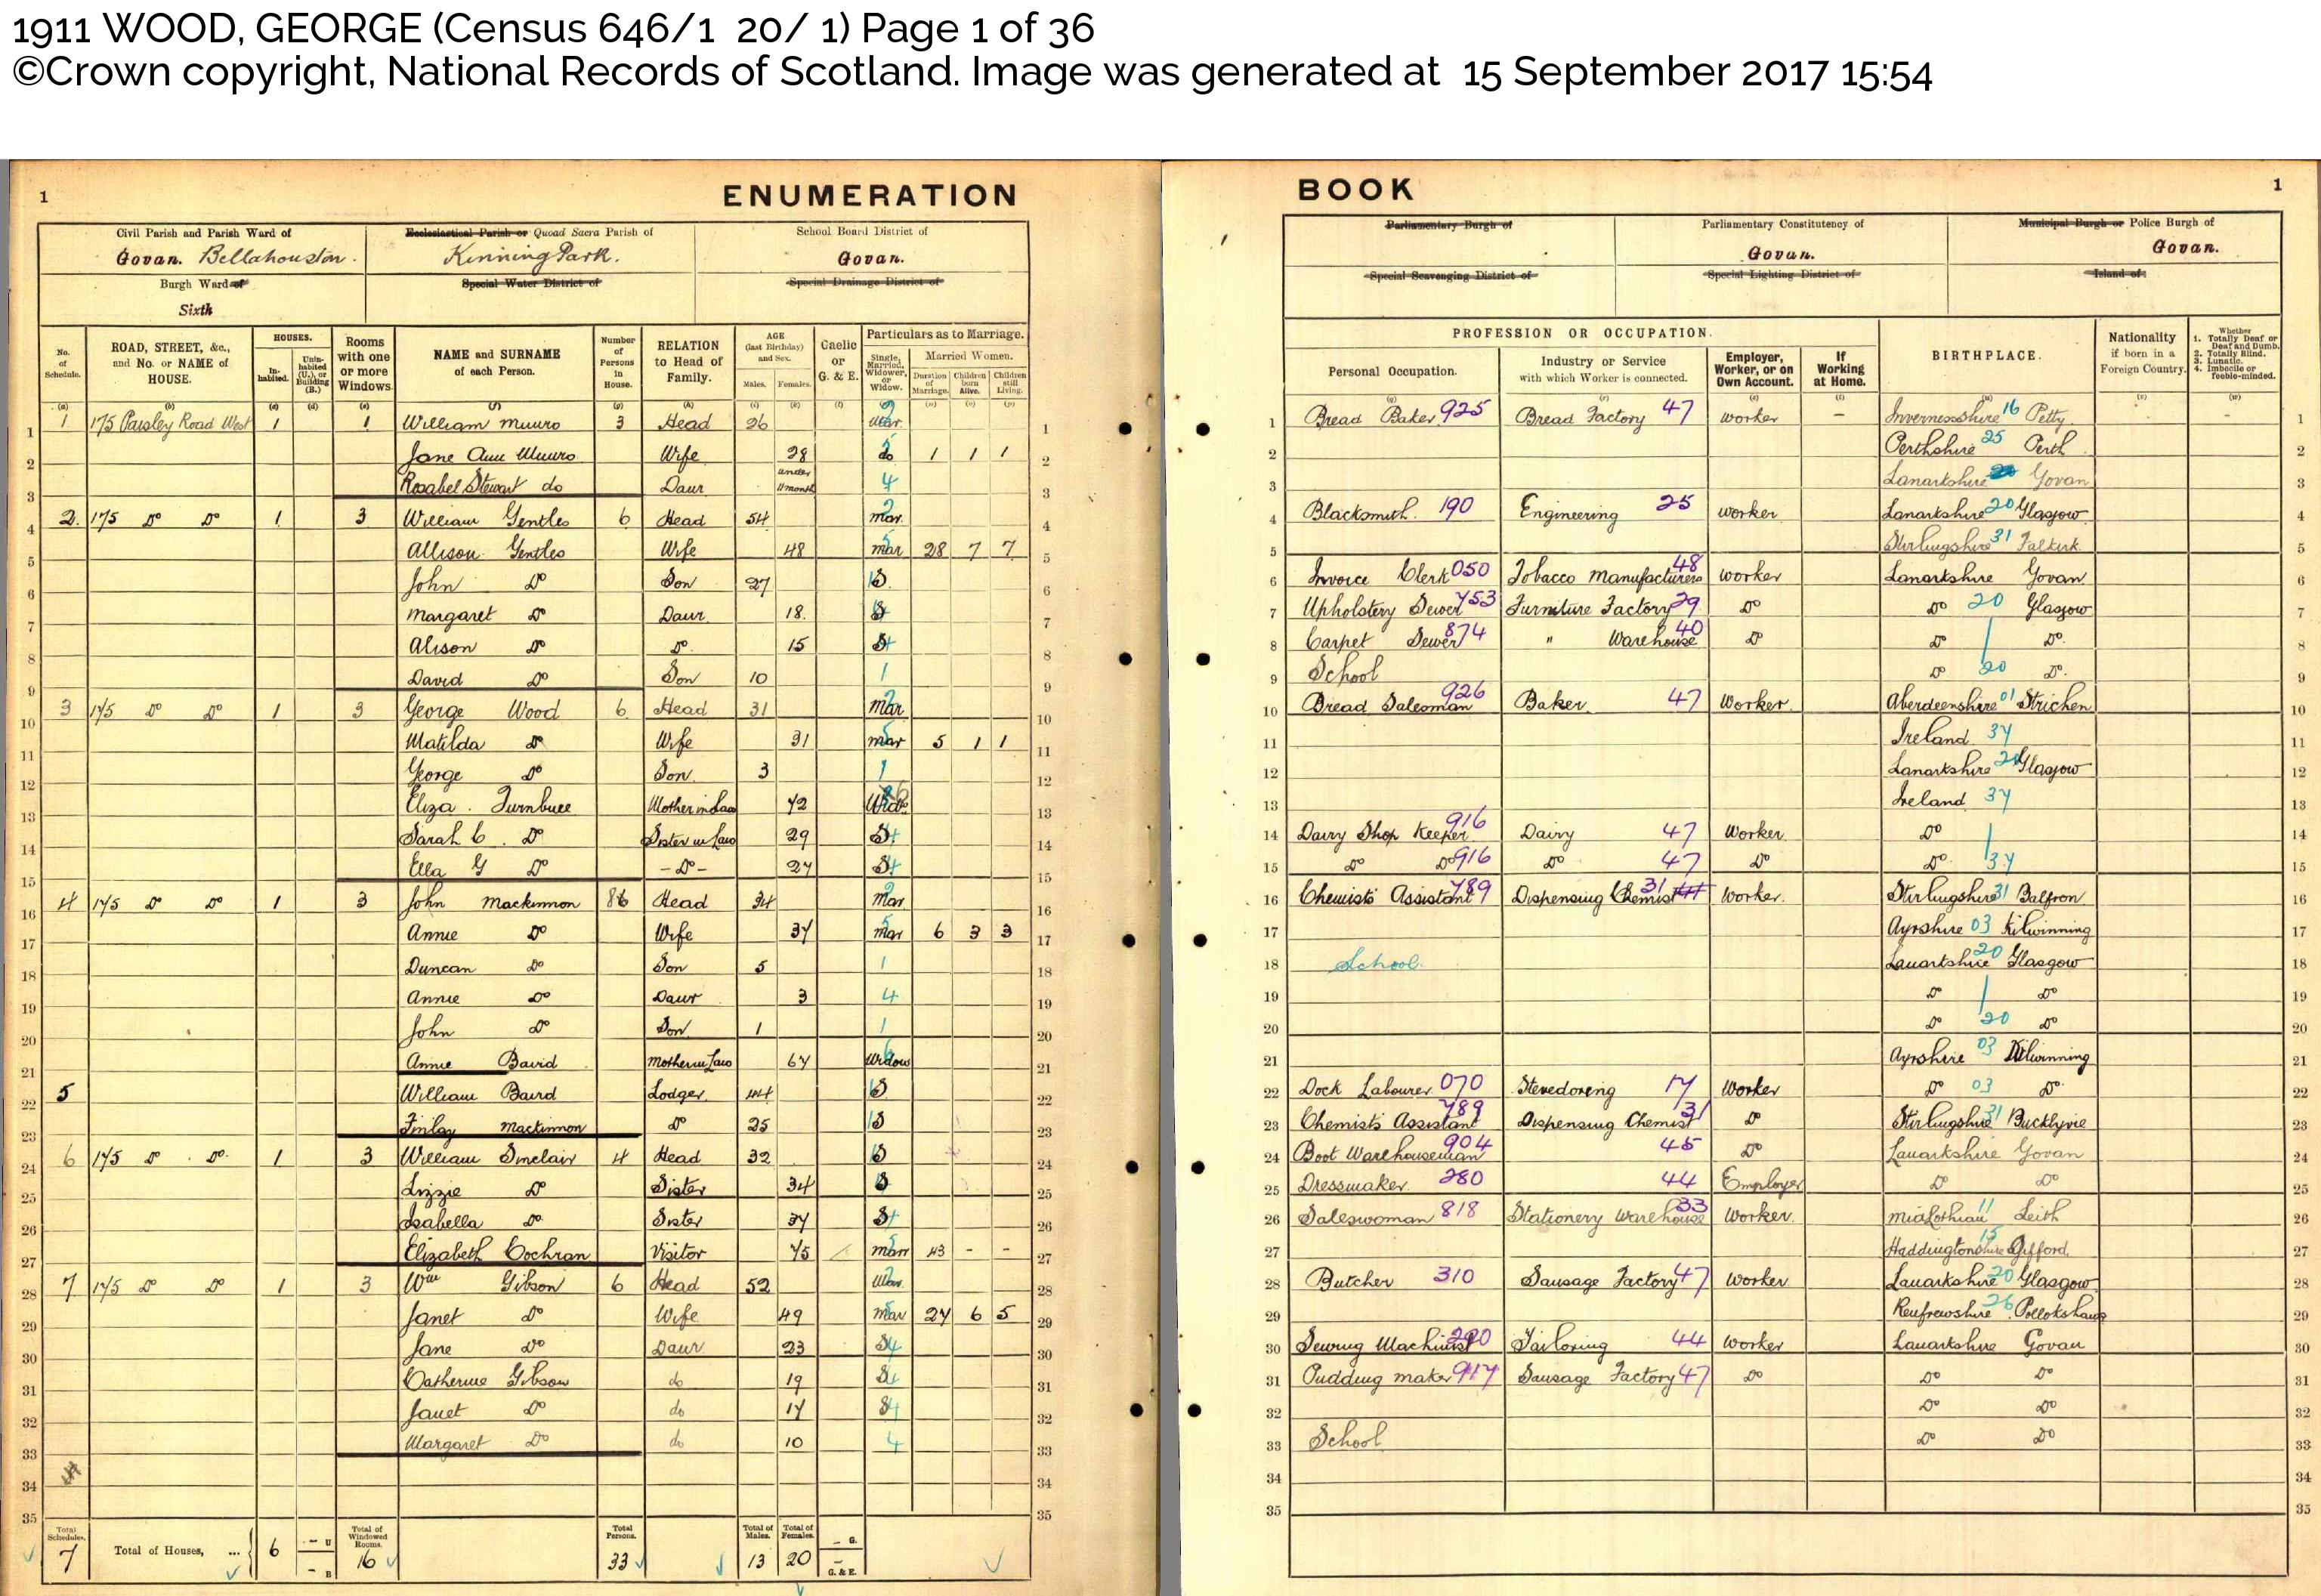 1911 WOOD, GEORGE (Census 646/1 20/ 1) Page 1 of 36
©Crown copyright, National Records of Scotland. Image was generated at 15 September 2017 15:54
1 ENUMERATION BOOK 1
Civil Parish and Parish Ward of
Govan. Bellahouston.
Ecclesiastical Parish or Quoad Sacra Parish of
KinningPark.
School Board District of
Govan.
Parliamentary Burgh of
Parliamentary Constitutency of
Govan.
Municipal Burgh or Police Burgh of
Govan.
Burgh Ward of
Sixth
Special Water District of
Special Drainage District of
Special Scavenging District of
Special Lighting District of
Island of
No. of Schedule.
ROAD, STREET, &c., and No. or NAME of HOUSE.
HOUSES.
Inhabited.
Uninhabited (U.), or Building (B.)
Rooms with one or more Windows.
NAME and SURNAME of each Person.
Number of Persons in House.
RELATION to Head of Family.
AGE (last Birthday) and Sex.
Males. Females.
Gaelic or G. & E.
Particulars as to Marriage.
Single, Married, Widower, or Widow.
Married Women.
Duration of Marriage. Children born Alive. Children still Living.
PROFESSION OR OCCUPATION.
Personal Occupation.
Industry or Service with which Worker is connected.
Employer, Worker, or on Own Account.
If Working at Home.
BIRTHPLACE.
Nationality if born in a Foreign Country.
Whether
1. Totally Deaf or Deaf and Dumb.
2. Totally Blind.
3. Lunatic.
4. Imbecile or feeble-minded.
1 1 175 Paisley Road West 1 1 William Munro 3 Head 26 Mar. 1 Bread Baker 925 Bread Factory 47 Worker – Invernessshire 16 Petty
2 Jane Ann Munro Wife 28 do 1 1 1 2 Perthshire 25 Perth
3 Rosabel Stewart do Daur under 11 month 4 3 Lanarkshire Govan
4 2. 175 Do Do 1 3 William Gentles 6 Head 54 mar. 4 Blacksmith. 190 Engineering 25 worker Lanarkshire 20 Glasgow
5 Allison Gentles Wife 48 mar 28 7 7 5 Stirlingshire 31 Falkirk
6 John Do Son 27 S. 6 Invoice Clerk 050 Tobacco manufacturers 48 worker Lanarkshire Govan
7 Margaret Do Daur 18. S 7 Upholstery Sewer 753 Furniture Factory 29 Do Do 20 Glasgow
8 Alison Do Do 15 S 8 Carpet Sewer 874 " Warehouse 40 Do Do Do.
9 David Do Son 10 1 9 School Do 20 Do.
10 3 175 Do Do 1 3 George Wood 6 Head 31 Mar 10 Bread Salesman 926 Baker 47 Worker Aberdeenshire 01 Strichen
11 Matilda Do Wife 31 mar 5 1 1 11 Ireland 37
12 George Do Son 3 1 12 Lanarkshire 20 Glasgow
13 Eliza. Turnbull Mother in Law 72 Wid 13 Ireland 37
14 Sarah C. Do Sister in Law 29 S 14 Dairy Shop Keeper 916 Dairy 47 Worker Do
15 Ella G Do – Do – 27 S 15 Do Do 916 Do 47 Do Do. 37
16 4 175 Do Do 1 3 John Mackinnon 8 Head 34 Mar 16 Chemists Assistant 789 Dispensing Chemist 31 Worker. Stirlingshire 31 Balfron
17 Annie Do Wife 37 Mar 6 3 3 17 Ayrshire 03 Kilwinning
18 Duncan Do Son 5 1 18 School. Lanarkshire 20 Glasgow
19 Annie Do Daur 3 4 19 Do Do
20 John Do Son 1 1 20 Do 20 Do
21 Annie Baird Mother in Law 67 Widow 21 Ayrshire 03 Kilwinning
22 5 William Baird Lodger 44 S 22 Dock Labourer 070 Stevedoreng 17 Worker Do 03 Do
23 Finlay Mackinnon Do 25 S 23 Chemists Assistant 789 Dispensing Chemist 31 Do Stirlingshire 31 Bucklyvie
24 6 175 Do Do. 1 3 William Sinclair 4 Head 32 S 24 Boot Warehouseman 904 45 Do Lanarkshire Govan
25 Lizzie Do Sister 34 S 25 Dressmaker. 280 44 Employer Do Do
26 Isabella Do Sister 37 S 26 Saleswoman 818 Stationery Warehouse 33 Worker. Midlothian 11 Leith
27 Elizabeth Cochran Visitor 75 marr 43 - - 27 Haddingtonshire 15 Gifford
28 7 175 Do Do 1 3 Wm Gibson 6 Head 52 Mar. 28 Butcher 310 Sausage Factory 47 Worker Lanarkshire 20 Glasgow
29 Janet Do Wife 49 Mar 27 6 5 29 Renfrewshire 26 Pollokshaws
30 Jane Do Daur 23 S4 30 Sewing Machinist Tailoring 44 Worker Lanarkshire Govan
31 Catherine Gibson do 19 S4 31 Pudding maker 917 Sausage Factory 47 Do Do Do
32 Janet Do do 17 S4 32 Do Do
33 Margaret Do do 10 4 33 School Do Do
34 34
35 35
Total Schedules, 7
Total of Houses, ... 6 – U – B
Total of Windowed Rooms. 16
Total Persons. 33
Total of Males. 13
Total of Females. 20
– G.
– G. & E.